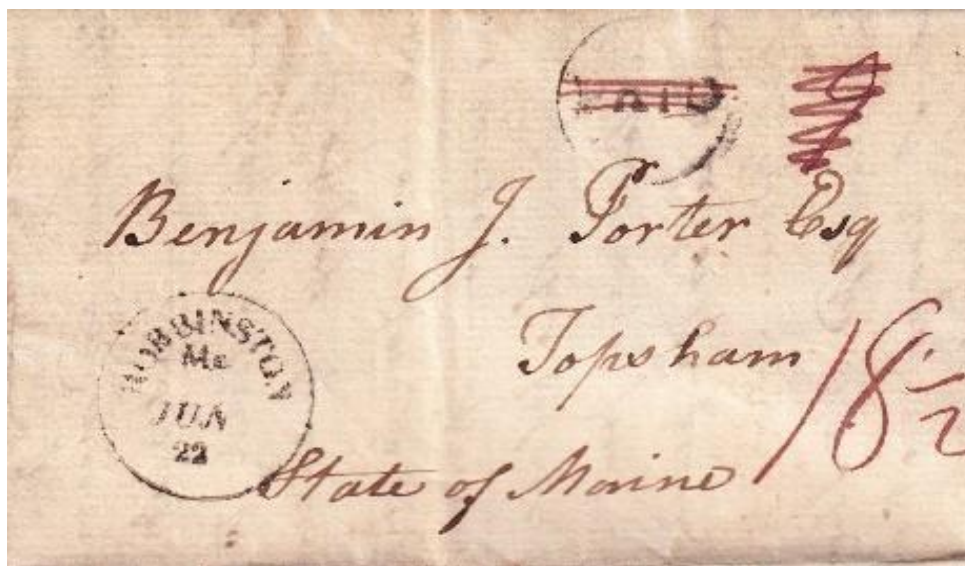 PAID
Benjamin J. Porter Esq
Topsham
18 1/2
State of Maine
ROBBINSTON
Me
JUN
22